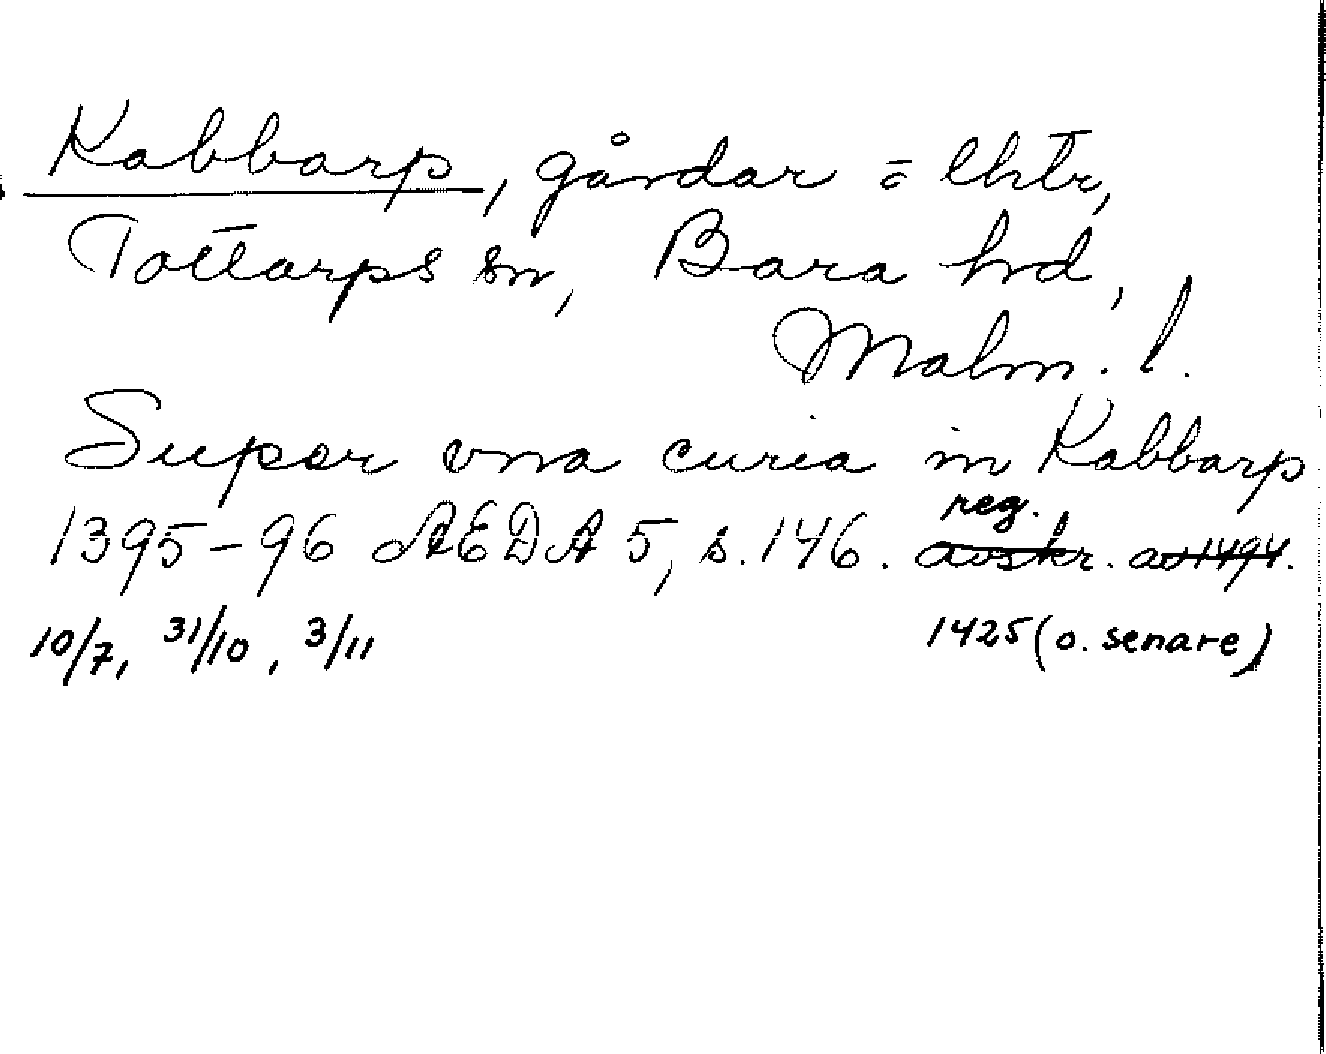 Kabbarp, gårdar o lhtr,
Tottarps sn, Bara hd,
Malm. l.
Super vna curia in Kabbarp
reg.
1395-96 ÆDA 5, s. 146. avskr. av 1494.
10/7, 31/10, 3/11 1425 (o. senare)